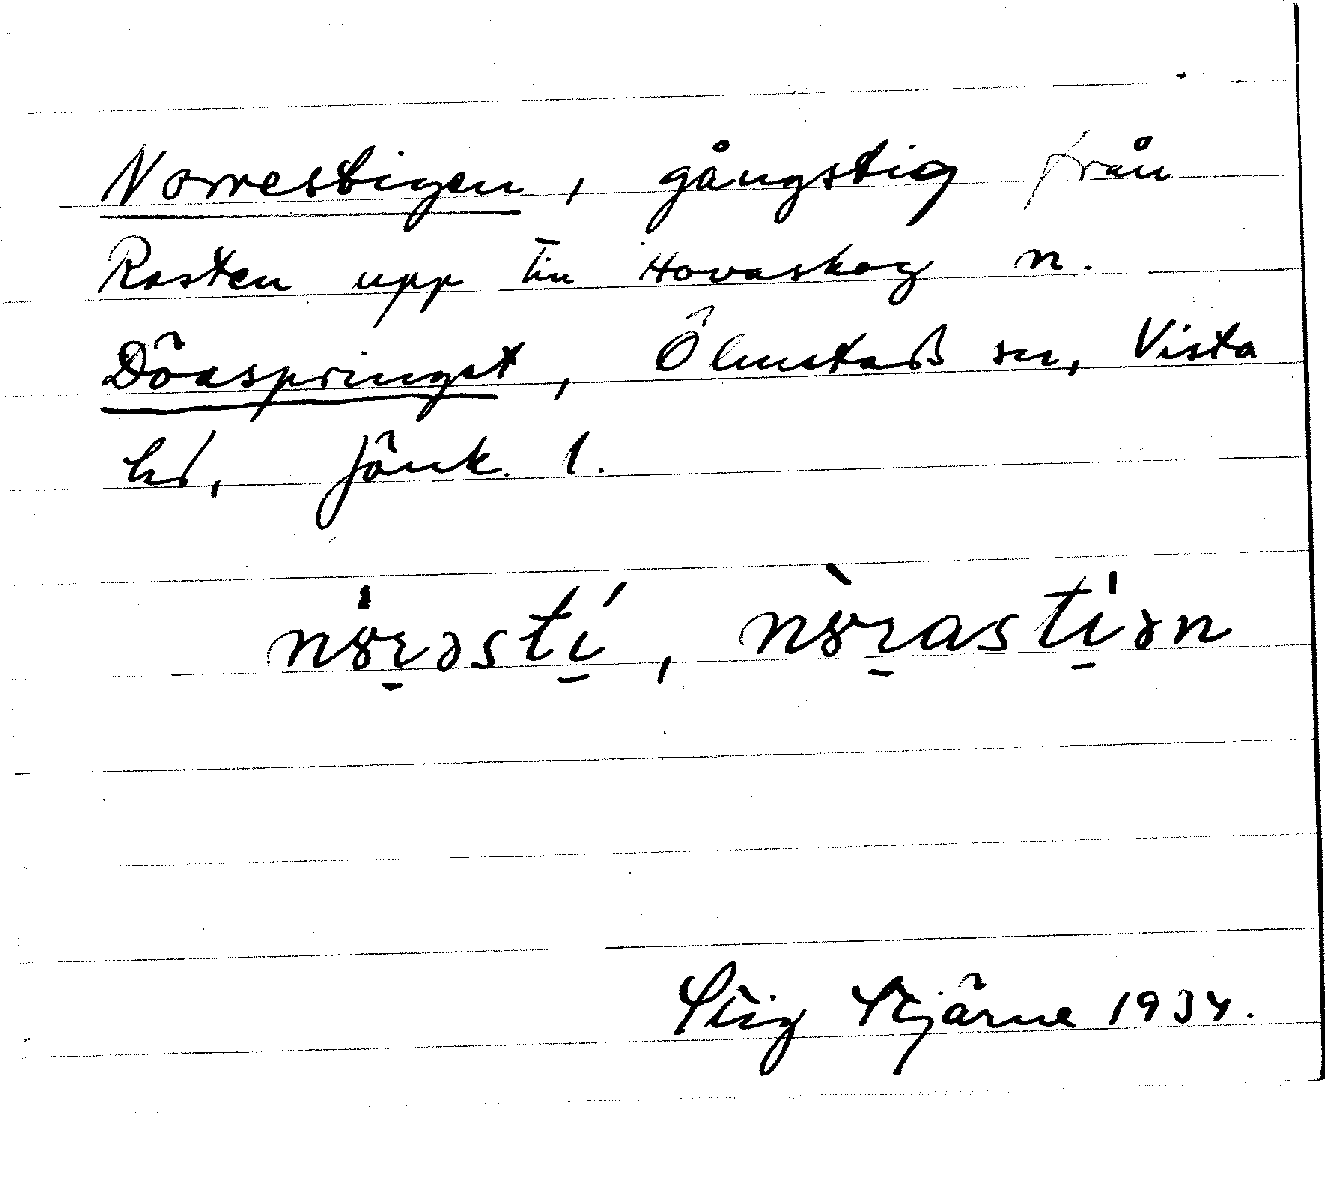 Norrestigen, gångstig från
Rasten upp till Hovaskog n.
Döaspringet, Ölmstads sn, Vista
hd, Jönk. l.
Stig Stjärne 1934.